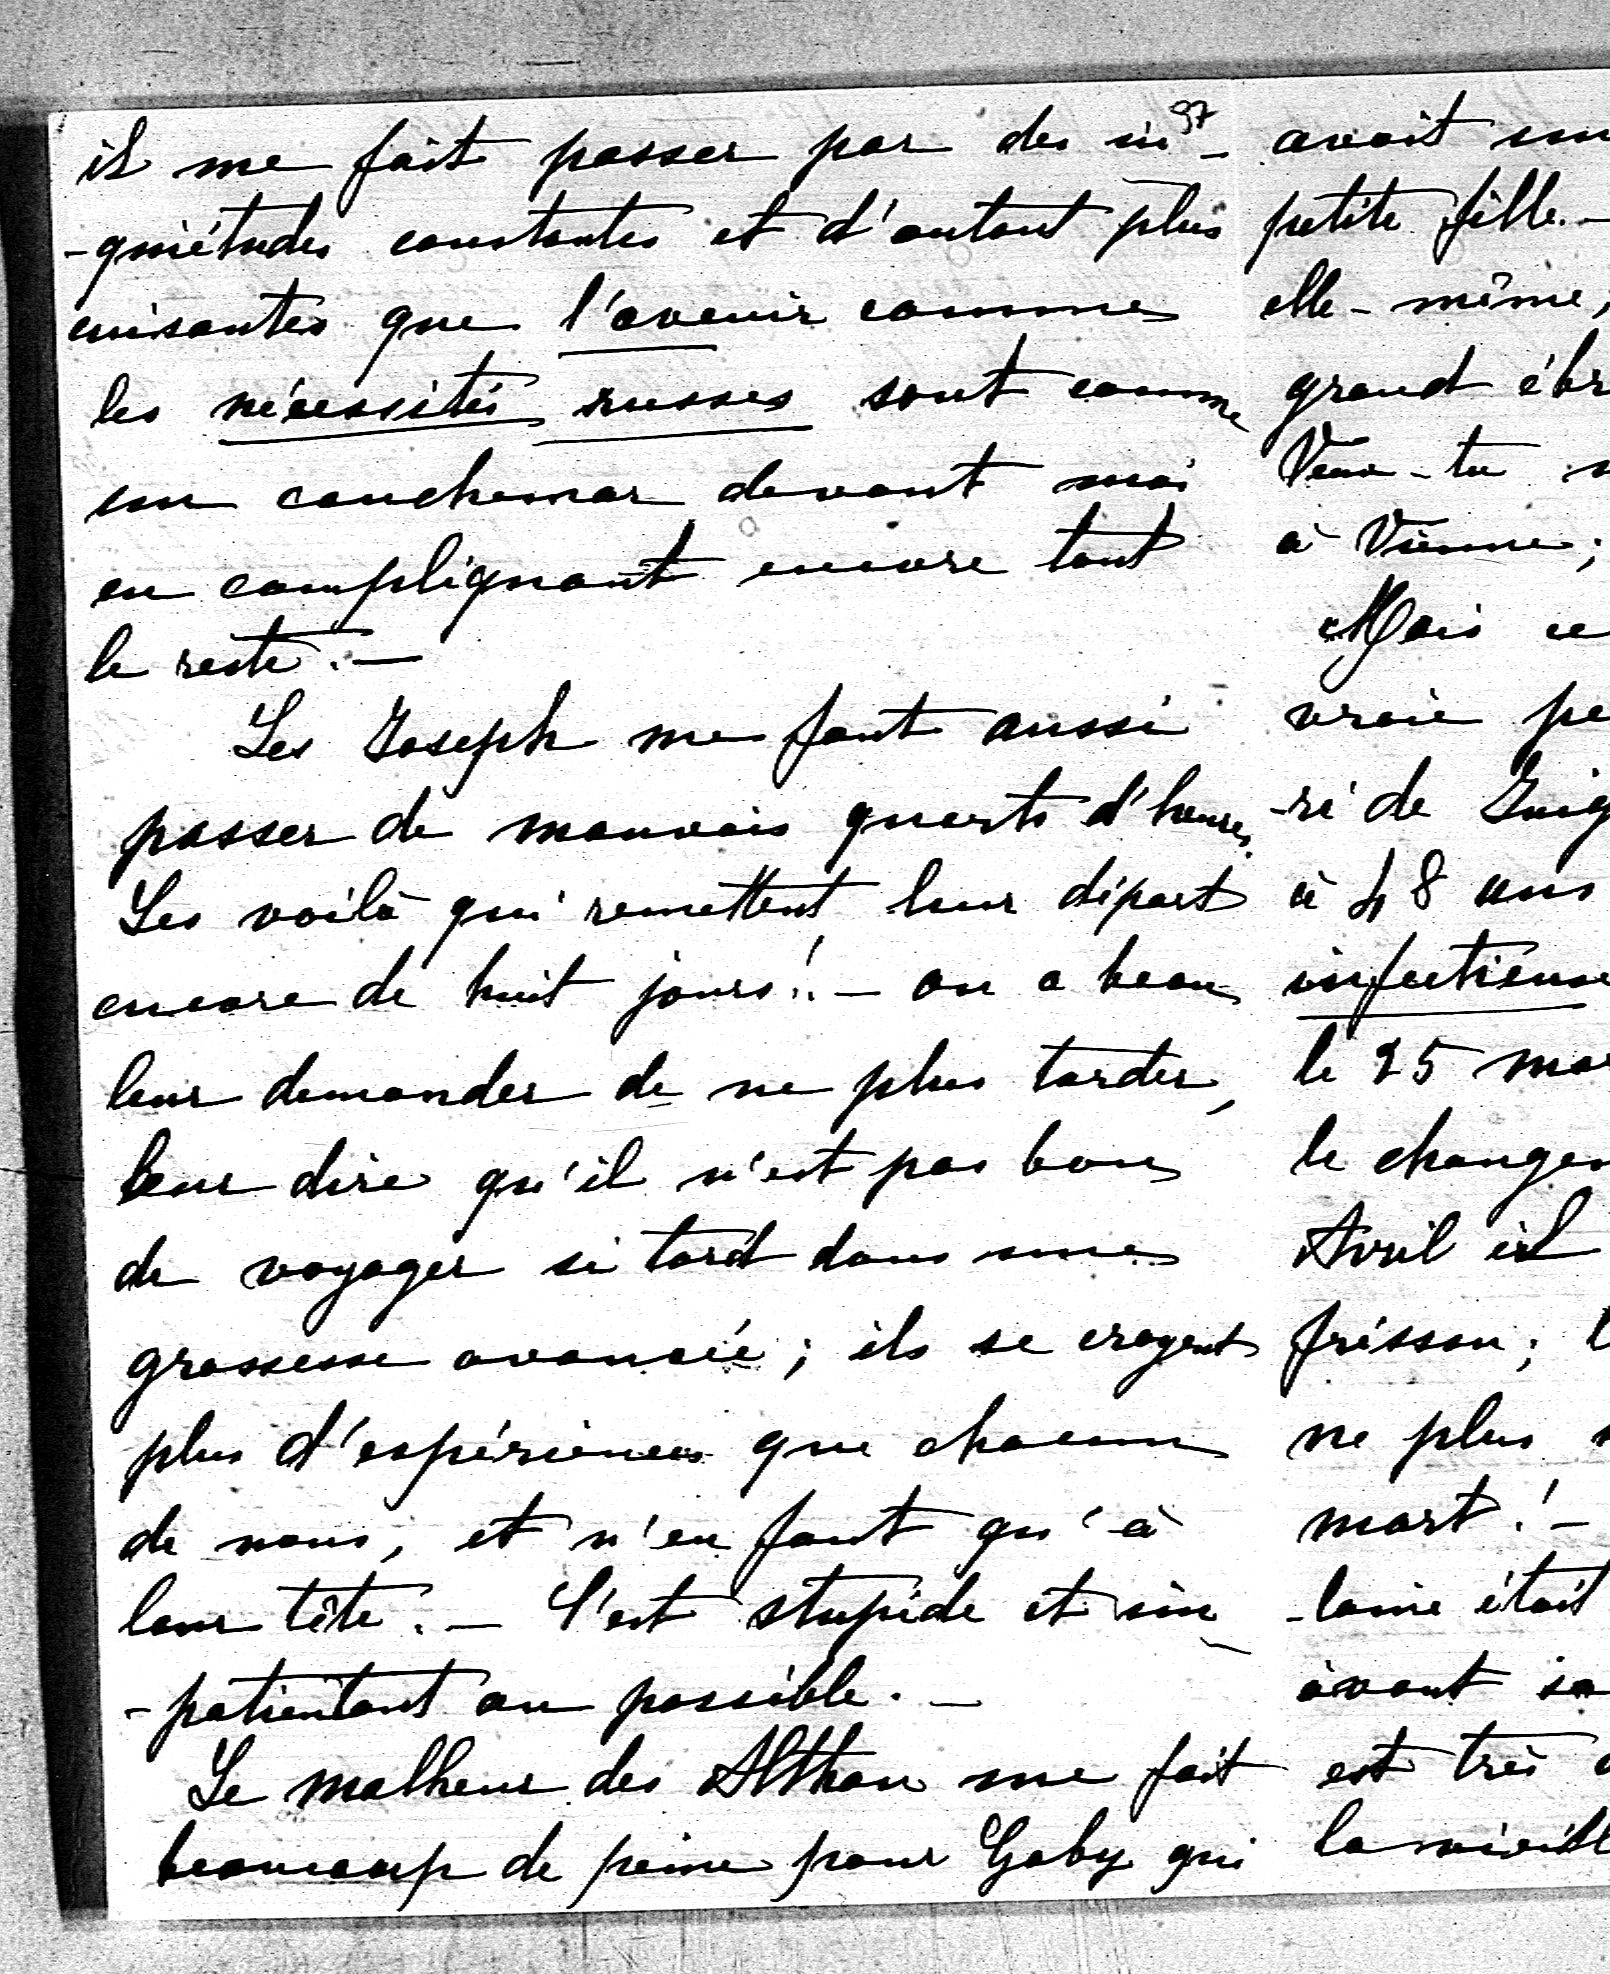 97
il me fait passer par des in-
-quiétudes constantes et d'autant plus
cuisantes que l'avenir comme
les nécessités russes sont comme
un cauchemar devant moi
en complignant encore tout
le reste. —
Les Joseph me font aussi
passer de mauvais quarts d'heures.
Les voilà qui remettent leur départ
encore de huit jours! — on a beau
leur demander de ne plus tarder,
leur dire qu'il n'est pas bon
de voyager si tard dans une
grossesse avancée; ils se croyent
plus d'expériences que chacun
de nous, et n'en font qu'à
leur tête. — C'est stupide et im-
-patientant au possible. —
Le malheur des Althan me fait
beaucoup de peine pour Gaby qui
avait un
petite fille. —
elle-même;
grand ébr
Veux-tu
à Vienne;
Mais ce
vraie pe
-ri de
à 48 ans
infectieuse
le 25 mar
le changem
Avril il
frisson;
ne plus
mort! —
-laine était
avant sa
est très
la vieill